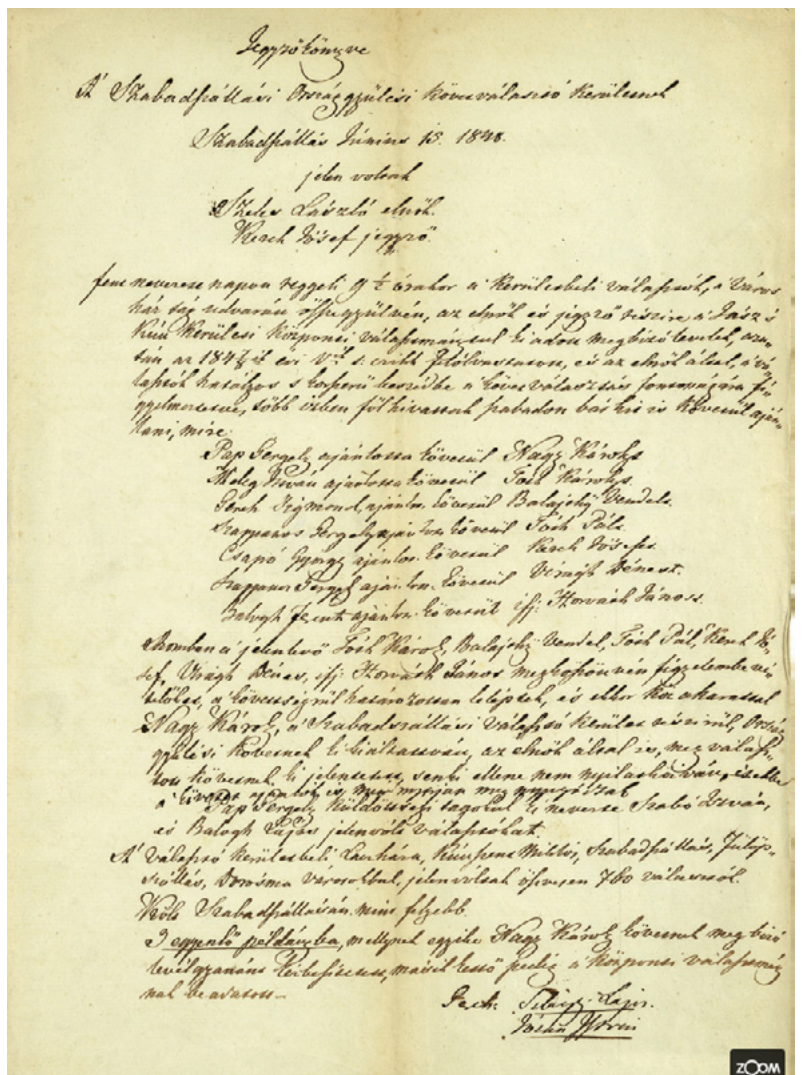 Jegyzőkönyve
A' Szabadszállási Országgyűlési követválasztó Kerületnek
Szabadszállás Június 15. 1848.
jelen voltak
Szeles László elnök.
Kerek József jegyző.
fent nevezett napon reggeli 9 ½ órakor a' Kerületbeli választók, a' Város
ház tág udvarán összegyűlvén, az elnök és jegyző részire a' Jász és
Kún Kerületi központi választmánytul kiadott megbízó levelek, azu-
tán az 184⅞ik évi Vik t. czikk felolvastatott, és az elnök által, a' vá-
lasztók hatályos s korszerű beszédbe a' követválasztás fontosságára fi-
gyelmeztetve, több ízben fölhivattak szabadon bárkit is követül aján-
lani, mire
Pap Gergely ajánlotta követül Nagy Károlyt
Meleg István ajánlotta követül Tóth Károlyt.
Zsigmond, ajánlott követül Balajthy Vendelt.
Kappanos Gergely ajánlott követül Tóth Pált.
Csapó György ajánlott követül Kerek Józsefet.
Kappanos Gergely ajánlott követül Virágh Dénest.
Balogh ajánlott követül ifj: Horváth Jánost.
Azomban a' jelenlevő Tóth Károly, Balajthy Vendel, Tóth Pál, Kerek Jó-
sef, Virágh Dénes, ifj: Horváth János megköszönvén figyelembe vé-
telöket, a' követségrül határozottan leléptek, és ekkor köz akarattal
Nagy Károly, a' Szabadszállási választó Kerület részirül, Ország
gyűlési követnek kikiáltatván, az elnök által is, meg válasz-
tott követnek ki jelentetett, senki ellene nem nyilatkozván,
a' követet
Pap Gergely küldöttségi tagokul ki nevezte Szabó István,
és Balogh Lajos jelenvólt választókat.
A' választó kerületbeli Laczháza, Kúnszent Miklós, Szabadszállás, Fülöp-
szállás, Dorosma városokbul, jelen vóltak összvesen 760 választók.
Költ Szabadszállásán mint feljebb.
3 egyenlő példányba, mellynek egyike Nagy Károly követnek megbízó
levélgyanánt kézbesittetett, másik kettő pedig a' központi választmány
nak beadatott.
ZOOM